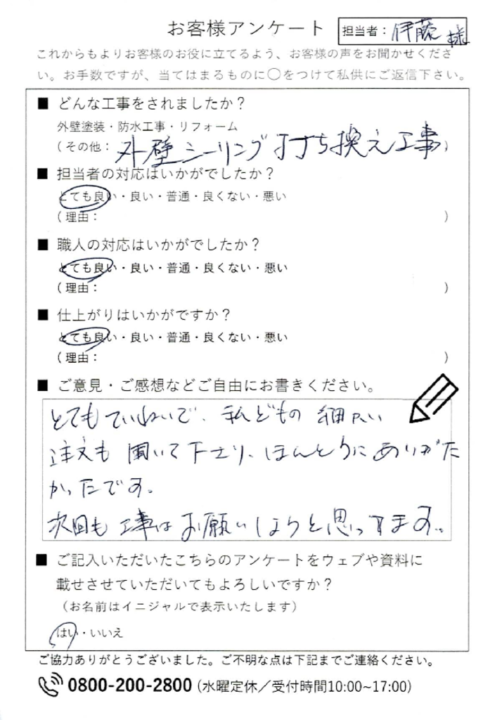 お客様アンケート
担当者：伊藤 様
これからもよりお客様のお役に立てるよう、お客様の声をお聞かせくださ
い。お手数ですが、当てはまるものに〇をつけて私供にご返信下さい。
■ どんな工事をされましたか？
外壁塗装・防水工事・リフォーム
（その他：外壁シーリング打ち換え工事）
■ 担当者の対応はいかがでしたか？
とても良い・良い・普通・良くない・悪い
（理由：　）
■ 職人の対応はいかがでしたか？
とても良い・良い・普通・良くない・悪い
（理由：　）
■ 仕上がりはいかがですか？
とても良い・良い・普通・良くない・悪い
（理由：　）
■ ご意見・ご感想などご自由にお書きください。
とてもていねいで、私どもの細かい
注文も聞いて下さり、ほんとうにありがた
かったです。
次回も工事はお願いしようと思ってます。
■ ご記入いただいたこちらのアンケートをウェブや資料に
載せさせていただいてもよろしいですか？
（お名前はイニジャルで表示いたします）
はい・いいえ
ご協力ありがとうございました。ご不明な点は下記までご連絡ください。
0800-200-2800（水曜定休／受付時間10:00~17:00）